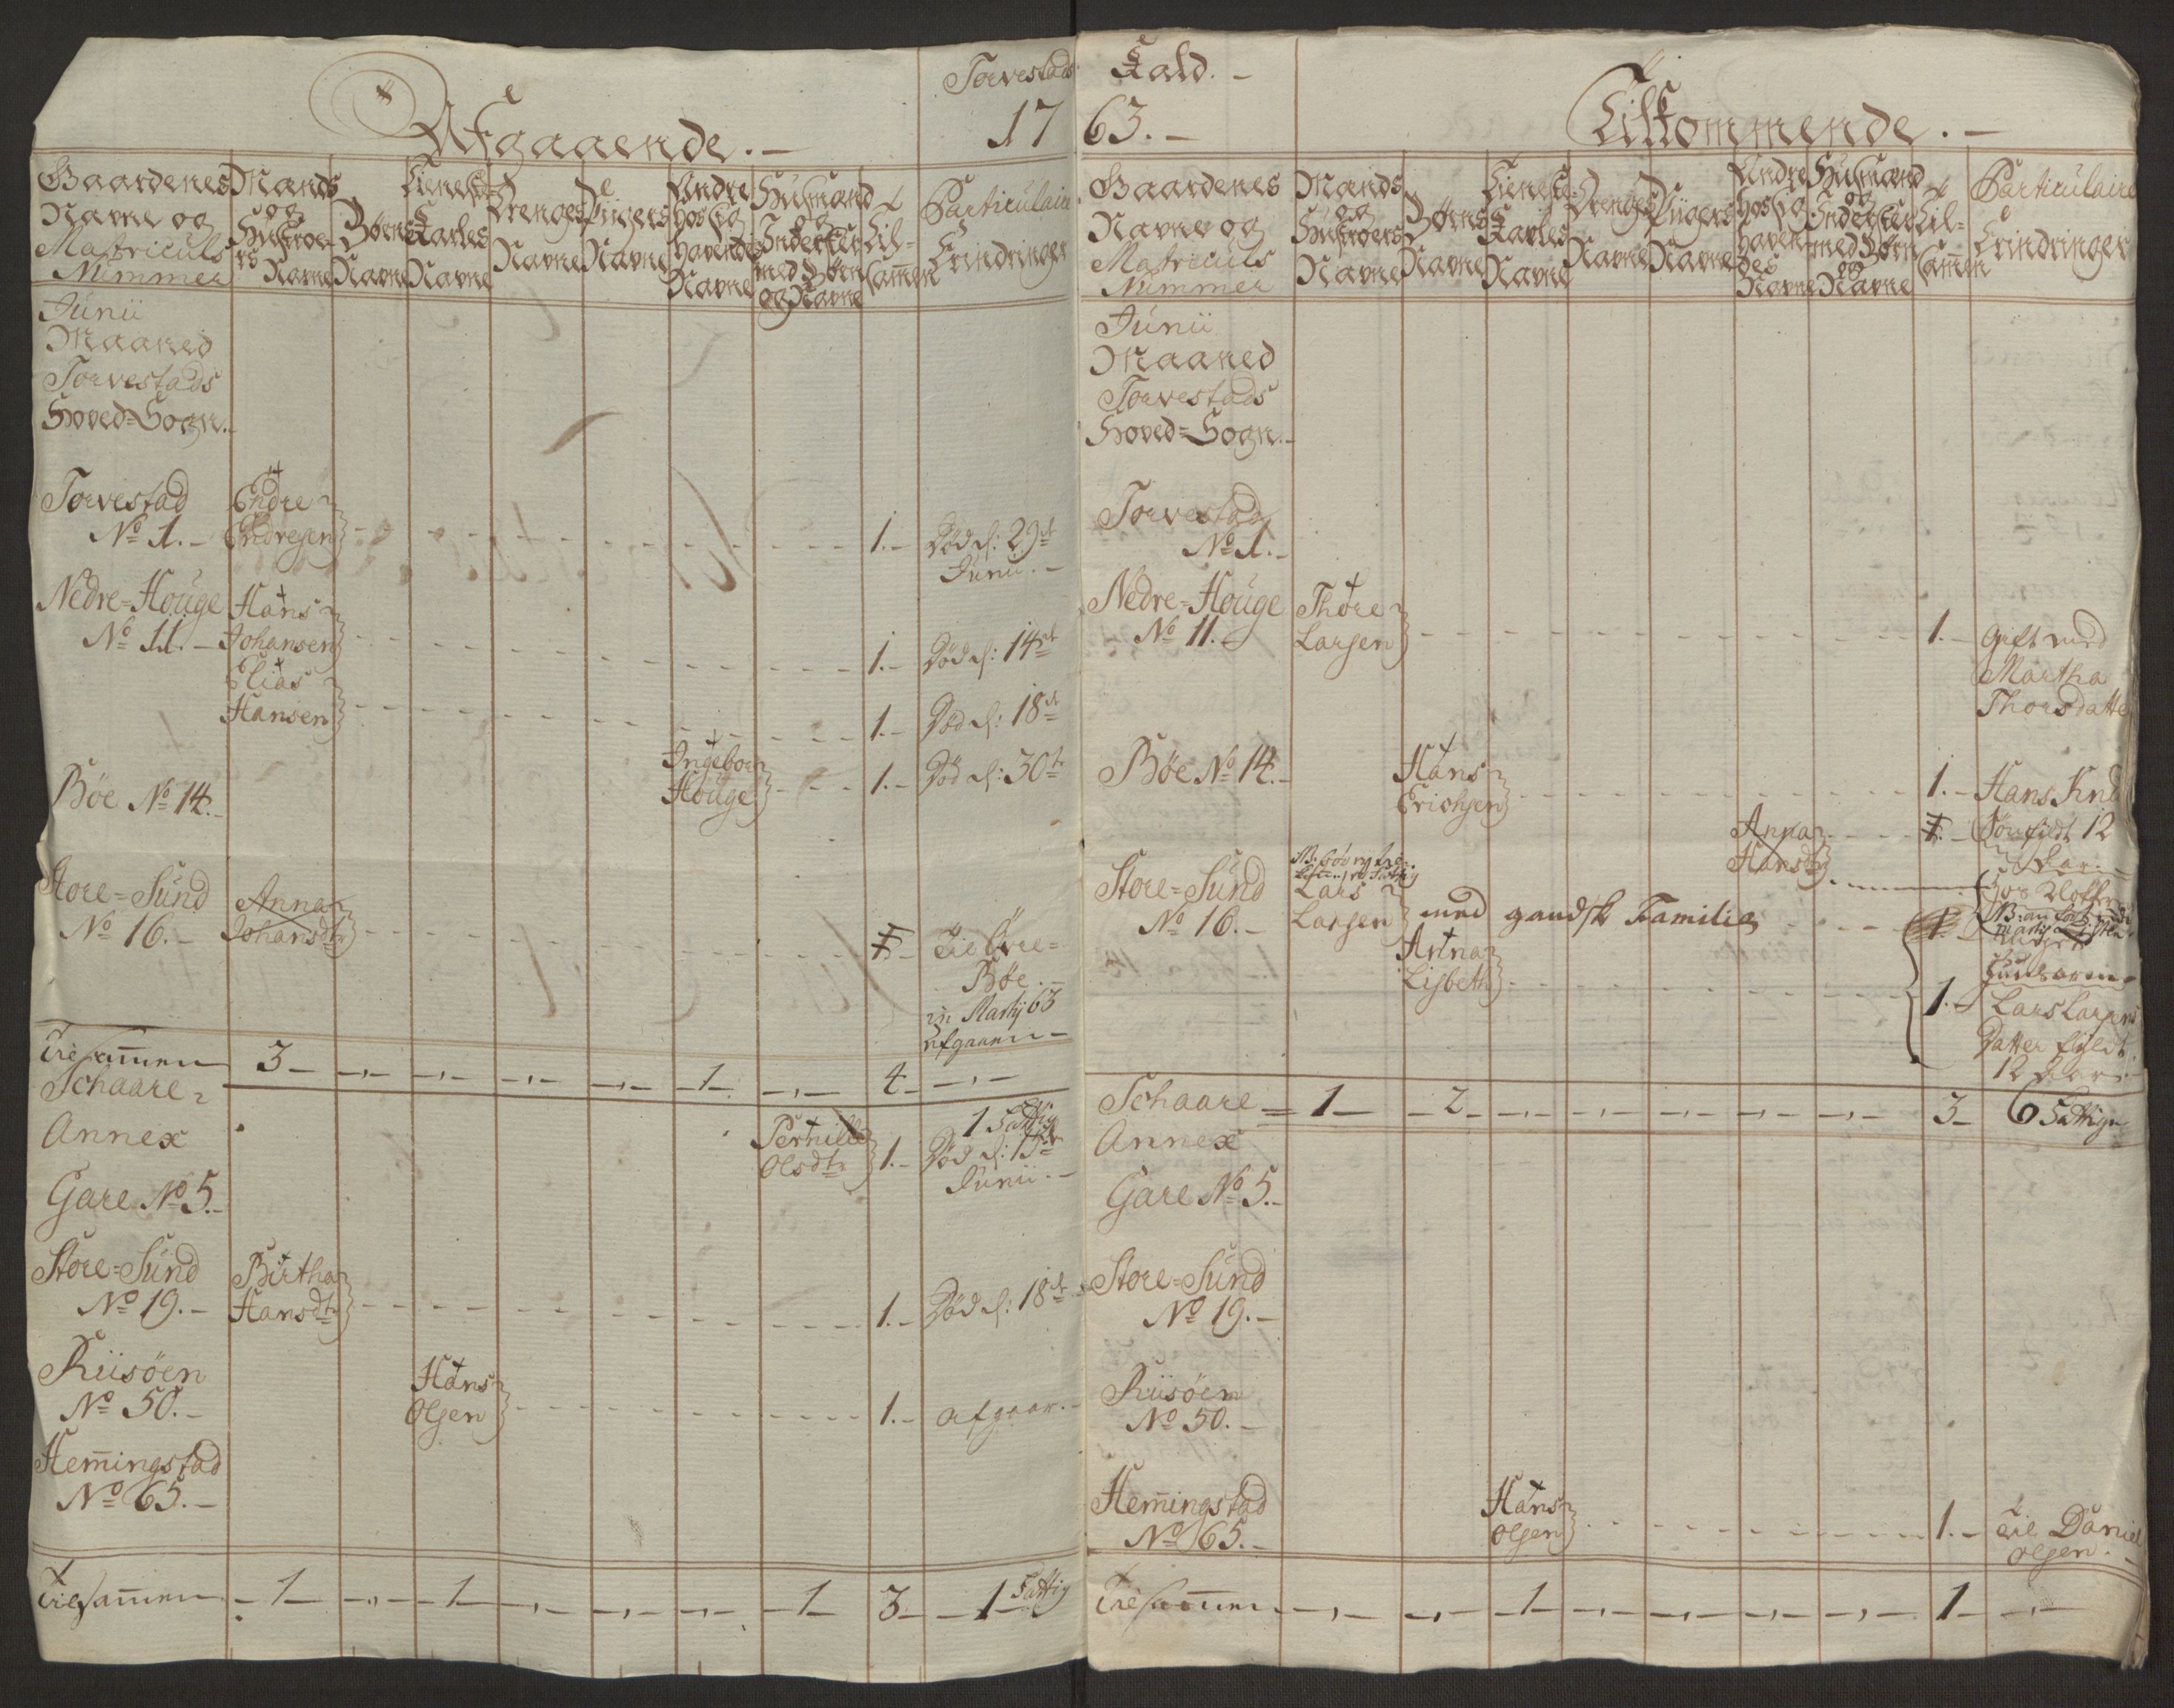 Torvestads
Afgaaende.
17
Gaardenes Navne og Matriculs Nummer
Mands og Hustroers Navne
Børnes Navne
Tieneste Karles Navne
Drenges Navne
Piigers Navne
Andre hos sig havendes Navne
Husmænd og Inderster med Børn og Navne
Tilsam̄en
Particulaire Erindringer
Junii
Maaned
Torvestads
Hoved=Sogn.
Torvestad Endre
No 1. Endresen 1. Død d: 29de
Junii.
Nedre=Houge Hans
No 11. Johansen 1. Død d: 14de
Elias
Hansen 1. Død d: 18de
Ingebor
Houge 1. Død d: 30te
Bøe No 14.
Store=Sund Anna
No 16. Johansdtr 1. til Øvre=
Bøe.
in Martij 63
afgaaen
Tilsam̄en 3 1 4
Schaare
Annex
1 Fattig
Pernille
Olsdtr 1. Død d: 15de
Junii.
Gare No 5.
Store=Sund Birtha
No 19. Hansdtr 1. Død d: 18de
Riisöen Hans
No 50. Olsen 1. afgaar.
Hem̄ingstad
No 65.
Tilsam̄en 1 1 1 3 1 Fattig
Kald.
63.
Tilkommende.
Gaardenes Navne og Matriculs Nummer
Mands og Hustroers Navne
Børnes Navne
Tieneste Karles Navne
Drenges Navne
Piigers Navne
Andre hos sig havendes Navne
Husmænd og Inderster med Børn og Navne
Tilsam̄en
Particulaire Erindringer
Junii
Maaned
Torvestads
Hoved=Sogn.
Torvestad
No 1.
Nedre=Houge Thore
No 11. Larsen 1. Gift med
Martha
Thorsdatter
Bøe No 14. Hans
Erichsen 1. Hans Knud
Anna
Hansdtr 1. Søn fyldt 12
Aar.
Store=Sund Lars
No 16. Larsen med gandske Familie 1.
Anna
Lisbeth 1. Lars Larsens
Datter fyldt
12 Aar.
Schaare 1 2 3 6 Fattige
Annex
Gare No 5.
Store=Sund
No 19.
Riisöen
No 50.
Hem̄ingstad Hans
No 65. Olsen 1. til Daniel
Olsen.
Tilsam̄en 1 1